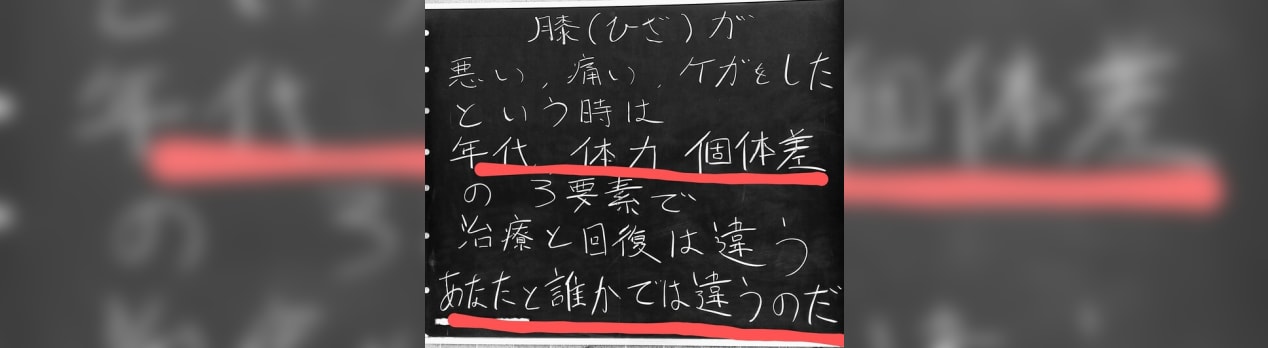 膝(ひざ)が
悪い、痛い、ケガをした
という時は
年代、体力 個体差
の 3要素で
治療と回復は違う
あなたと誰かでは違うのだ